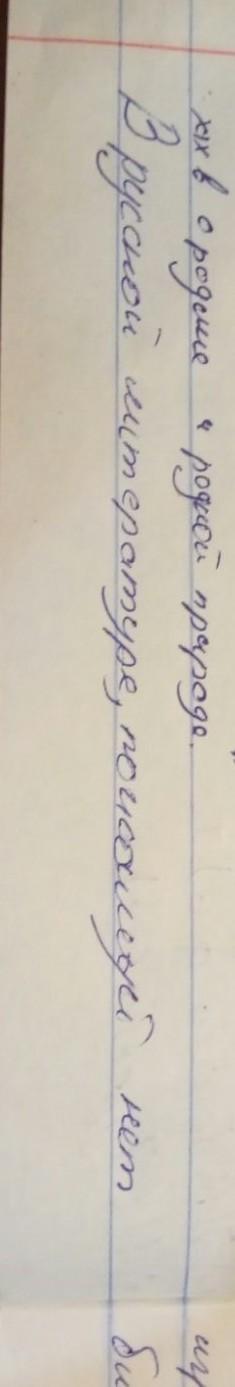 XIX в о родине и родной природе.
В русской литературе, пожалуй нет